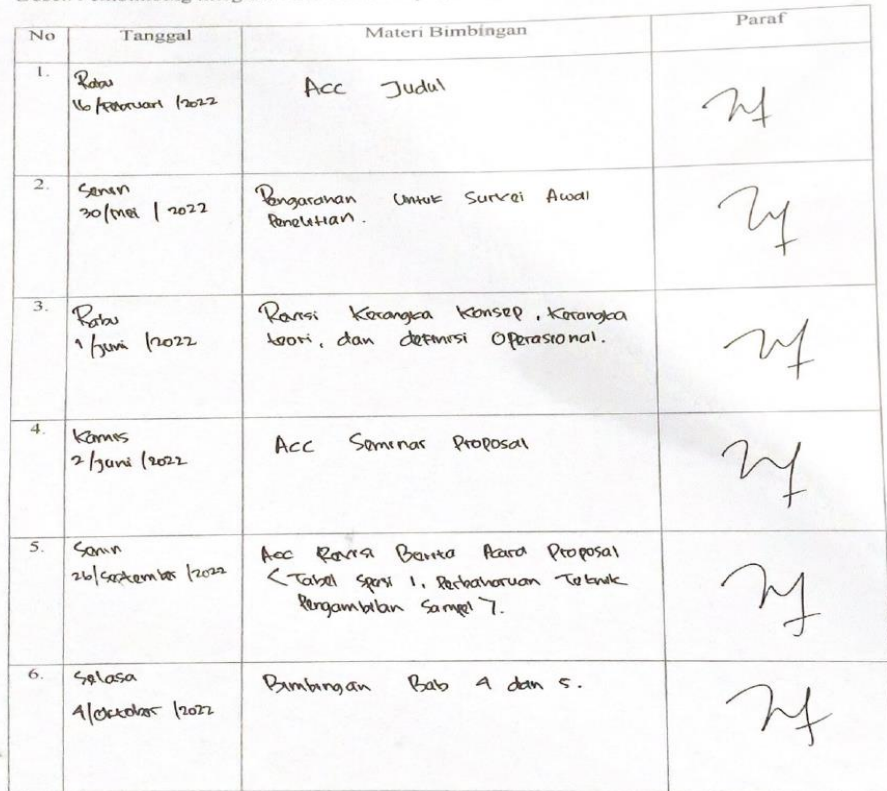 No Tanggal Materi Bimbingan Paraf
1. Rabu
16/Februari/2022 Acc Judul
2. Senin
30/Mei/2022 Pengarahan Untuk Survei Awal
Penelitian.
3. Rabu
1/Juni/2022 Revisi Kerangka Konsep, Kerangka
teori, dan definisi Operasional.
4. Kamis
2/Juni/2022 Acc Seminar Proposal
5. Senin
26/September/2022 Acc Revisi Berita Acara Proposal
<Tabel 1, Perbaharuan Teknik
Pengambilan Sampel>.
6. Selasa
4/Oktober/2022 Bimbingan Bab 4 dan 5.